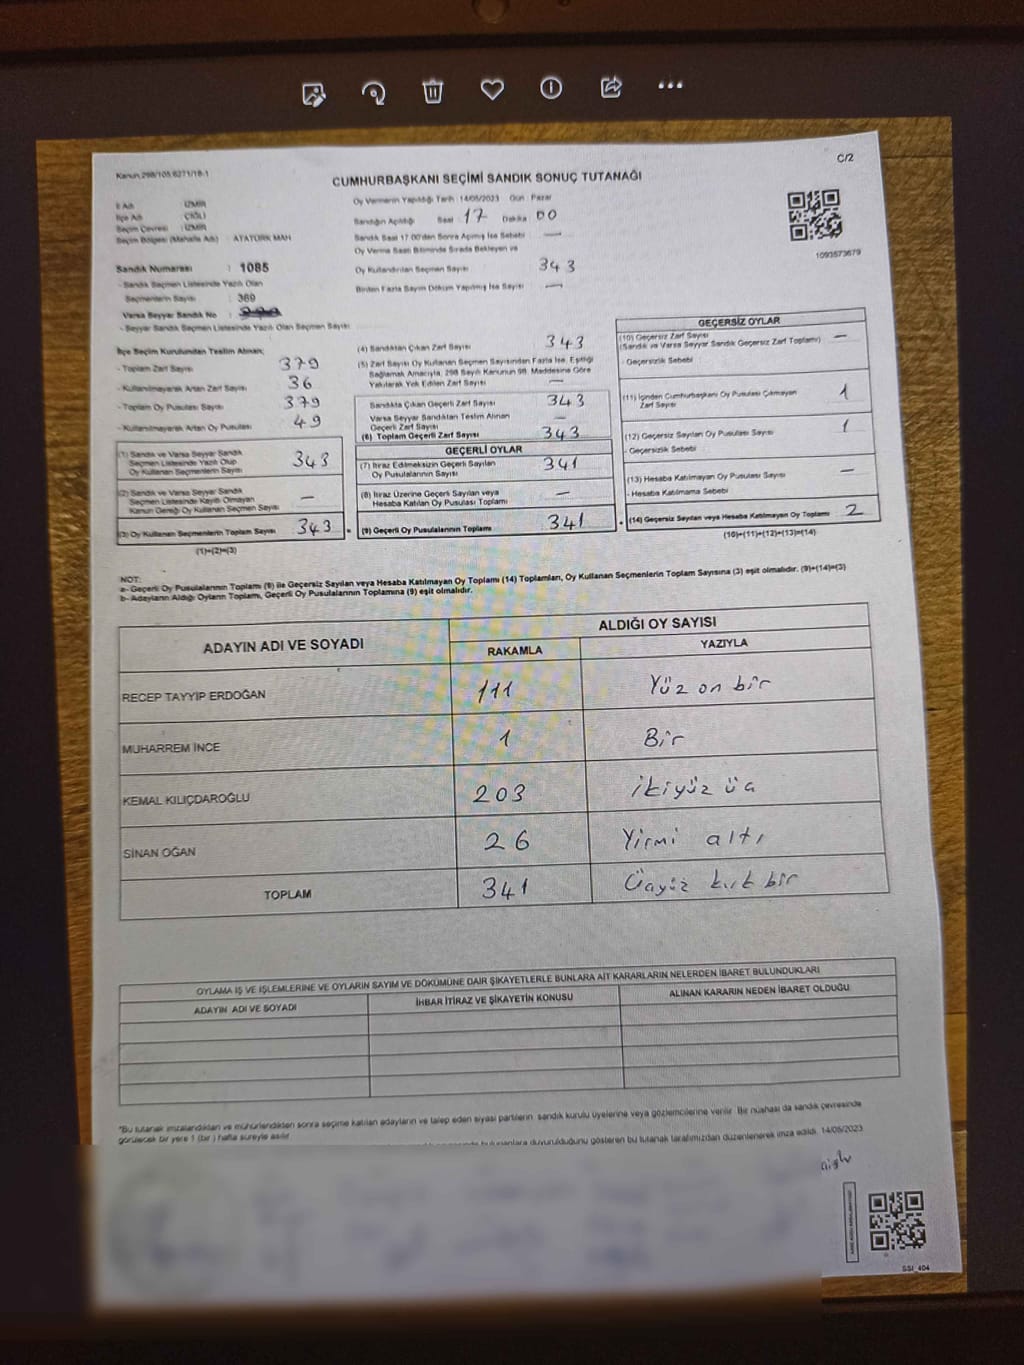 Kanun 298/105 6271/18-1
C/2
CUMHURBAŞKANI SEÇİMİ SANDIK SONUÇ TUTANAĞI
İl Adı : İZMİR
İlçe Adı : ÇİĞLİ
Seçim Çevresi : İZMİR
Seçim Bölgesi (Mahalle Adı) : ATATÜRK MAH
Sandık Numarası : 1085
- Sandık Seçmen Listesinde Yazılı Olan
Seçmenlerin Sayısı : 369
Varsa Seyyar Sandık No :
- Seyyar Sandık Seçmen Listesinde Yazılı Olan Seçmen Sayısı
Oy Vermenin Yapıldığı Tarih : 14/05/2023 Gün : Pazar
Sandığın Açıldığı Saat : 17 Dakika : 00
Sandık Saat 17.00'den Sonra Açılmış İse Sebebi : —
Oy Verme Saati Bitiminde Sırada Bekleyen ve
Oy Kullandırılan Seçmen Sayısı : 343
Birden Fazla Sayım Döküm Yapılmış İse Sayısı : —
1093573679
İlçe Seçim Kurulundan Teslim Alınan;
- Toplam Zarf Sayısı : 379
- Kullanılmayarak Artan Zarf Sayısı : 36
- Toplam Oy Pusulası Sayısı : 379
- Kullanılmayarak Artan Oy Pusulası : 49
(1) Sandık ve Varsa Seyyar Sandık
Seçmen Listesinde Yazılı Olup
Oy Kullanan Seçmenlerin Sayısı : 343
(2) Sandık ve Varsa Seyyar Sandık
Seçmen Listesinde Kayıtlı Olmayan
Kanun Gereği Oy Kullanan Seçmen Sayısı : —
(3) Oy Kullanan Seçmenlerin Toplam Sayısı : 343
(1)+(2)=(3)
(4) Sandıktan Çıkan Zarf Sayısı : 343
(5) Zarf Sayısı Oy Kullanan Seçmen Sayısından Fazla İse, Eşitliği
Sağlamak Amacıyla, 298 Sayılı Kanunun 98. Maddesine Göre
Yakılarak Yok Edilen Zarf Sayısı : —
Sandıkta Çıkan Geçerli Zarf Sayısı : 343
Varsa Seyyar Sandıktan Teslim Alınan
Geçerli Zarf Sayısı : —
(6) Toplam Geçerli Zarf Sayısı : 343
GEÇERLİ OYLAR
(7) İtiraz Edilmeksizin Geçerli Sayılan
Oy Pusulasının Sayısı : 341
(8) İtiraz Üzerine Geçerli Sayılan veya
Hesaba Katılan Oy Pusulası Toplamı : —
(9) Geçerli Oy Pusulalarının Toplamı : 341
GEÇERSİZ OYLAR
(10) Geçersiz Zarf Sayısı : —
(Sandık ve Varsa Seyyar Sandık Geçersiz Zarf Toplamı)
- Geçersizlik Sebebi
(11) İçinden Cumhurbaşkanı Oy Pusulası Çıkmayan
Zarf Sayısı : 1
(12) Geçersiz Sayılan Oy Pusulası Sayısı : 1
- Geçersizlik Sebebi
(13) Hesaba Katılmayan Oy Pusulası Sayısı : —
- Hesaba Katılmama Sebebi
(14) Geçersiz Sayılan veya Hesaba Katılmayan Oy Toplamı : 2
(10)+(11)+(12)+(13)=(14)
NOT:
a- Geçerli Oy Pusulalarının Toplamı (9) ile Geçersiz Sayılan veya Hesaba Katılmayan Oy Toplamı (14) Toplamları, Oy Kullanan Seçmenlerin Toplam Sayısına (3) eşit olmalıdır. (9)+(14)=(3)
b- Adayların Aldığı Oyların Toplamı, Geçerli Oy Pusulalarının Toplamına (9) eşit olmalıdır.
ADAYIN ADI VE SOYADI
ALDIĞI OY SAYISI
RAKAMLA YAZIYLA
RECEP TAYYİP ERDOĞAN 111 Yüz on bir
MUHARREM İNCE 1 Bir
KEMAL KILIÇDAROĞLU 203 ikiyüz üç
SİNAN OĞAN 26 Yirmi altı
TOPLAM 341 Üçyüz kırk bir
OYLAMA İŞ VE İŞLEMLERİNE VE OYLARIN SAYIM VE DÖKÜMÜNE DAİR ŞİKAYETLERLE BUNLARA AİT KARARLARIN NELERDEN İBARET BULUNDUKLARI
ADAYIN ADI VE SOYADI İHBAR İTİRAZ VE ŞİKAYETİN KONUSU ALINAN KARARIN NEDEN İBARET OLDUĞU
*Bu tutanak imzalandıktan ve mühürlendikten sonra seçime katılan adayların ve talep eden siyasi partilerin sandık kurulu üyelerine veya gözlemcilerine verilir. Bir nüshası da sandık çevresinde
görülecek bir yere 1 (bir) hafta süreyle asılır.
bulunanlara duyurulduğunu gösteren bu tutanak tarafımızdan düzenlenerek imza edildi. 14/05/2023
SSI_404